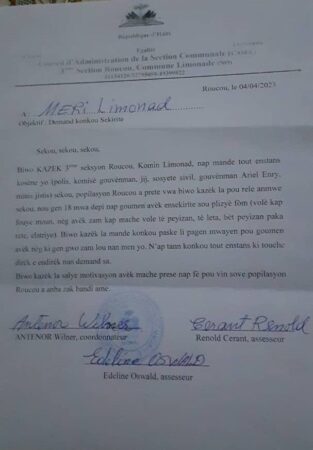 République d'Haïti
Conseil d'Administration de la Section Communale (CASEC)
3ème Section Roucou, Commune Limonade
Roucou, le 04/04/2023
A : MERI Limonad
Objektif : Demand konkou Sekirite
Sekou, sekou, sekou,
Biwo KAZEK 3ème seksyon Roucou, Komin Limonad, nap mande tout enstans
kosène yo ipolis, komisè gouvènman, jij, sosyete sivil, gouvènman Ariel Enry,
minis jistis sekou, popilasyon Roucou a prete vwa biwo kazèk la pou rele anmwe
sekou, nou gen 18 mwa depi nap goumen avèk ensekirite sou plizyè fòm (volè kap
fouye moun, nèg avèk zam kap mache vole tè peyizan, tè leta, bèt peyizan paka
rete, elatriye). Biwo kazèk la mande konkou paske li pagen mwayen pou goumen
avèk nèg ki gen gwo zam lou nan men yo. N'ap tann konkou tout enstans ki touche
dirèk e endirèk nan demand sa.
Biwo kazèk la salye motivasyon avèk mache prese nap fè pou vin sove popilasyon
Roucou a anba zak bandi ame.
Antenor Wilner
Cerant Renold
ANTENOR Wilner, coordonnateur
Renold Cerant, assesseur
Edeline OSWALD
Edeline Oswald, assesseur